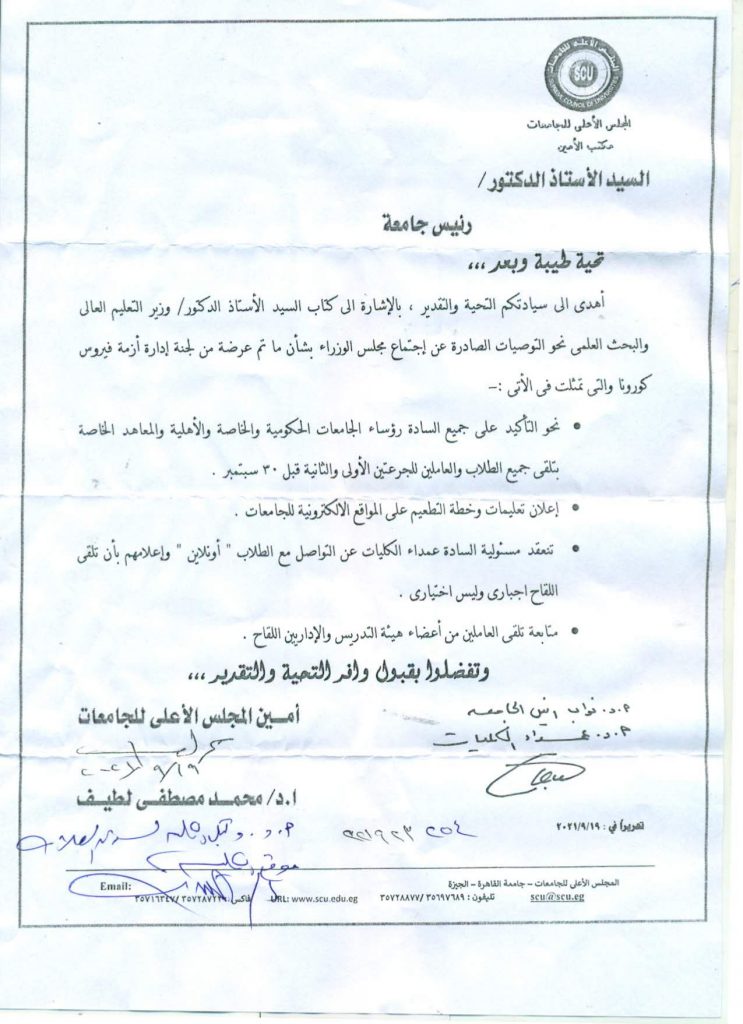 المجلس الأعلى للجامعات
SCU
SUPREME COUNCIL OF UNIVERSITIES
المجلس الأعلى للجامعات
مكتب الأمين
السيد الأستاذ الدكتور/
رئيس جامعة
تحية طيبة وبعد ,,,
أهدى الى سيادتكم التحية والتقدير ، بالإشارة الى كتاب السيد الأستاذ الدكتور/ وزير التعليم العالى
والبحث العلمى نحو التوصيات الصادرة عن إجتماع مجلس الوزراء بشأن ما تم عرضة من لجنة إدارة أزمة فيروس
كورونا والتى تمثلت فى الأتى :-
• نحو التأكيد على جميع السادة رؤساء الجامعات الحكومية والخاصة والأهلية والمعاهد الخاصة
بتلقى جميع الطلاب والعاملين للجرعتين الأولى والثانية قبل ٣٠ سبتمبر .
• إعلان تعليمات وخطة التطعيم على المواقع الالكترونية للجامعات .
• تنعقد مسئولية السادة عمداء الكليات عن التواصل مع الطلاب " أونلاين " وإعلامهم بأن تلقى
اللقاح اجبارى وليس اختيارى .
• متابعة تلقى العاملين من أعضاء هيئة التدريس والإداريين اللقاح .
وتفضلوا بقبول وافر التحية والتقدير ,,,
أمين المجلس الأعلى للجامعات
أ.د. نواب رئيس الجامعه
أ.د. عمداء الكليات
٩/١٩
ا.د/ محمد مصطفى لطيف
تحريراً في : ٢٠٢١/٩/١٩
المجلس الأعلى للجامعات – جامعة القاهرة – الجيزة
Email:
scu@scu.eg تليفون : ٣٥٦٩٧٦٨٩ /٣٥٧٢٨٨٧٧ URL: www.scu.edu.eg فاكس: ٣٥٧٢٨٧٢٢/ ٣٥٧١٦٣٤٧